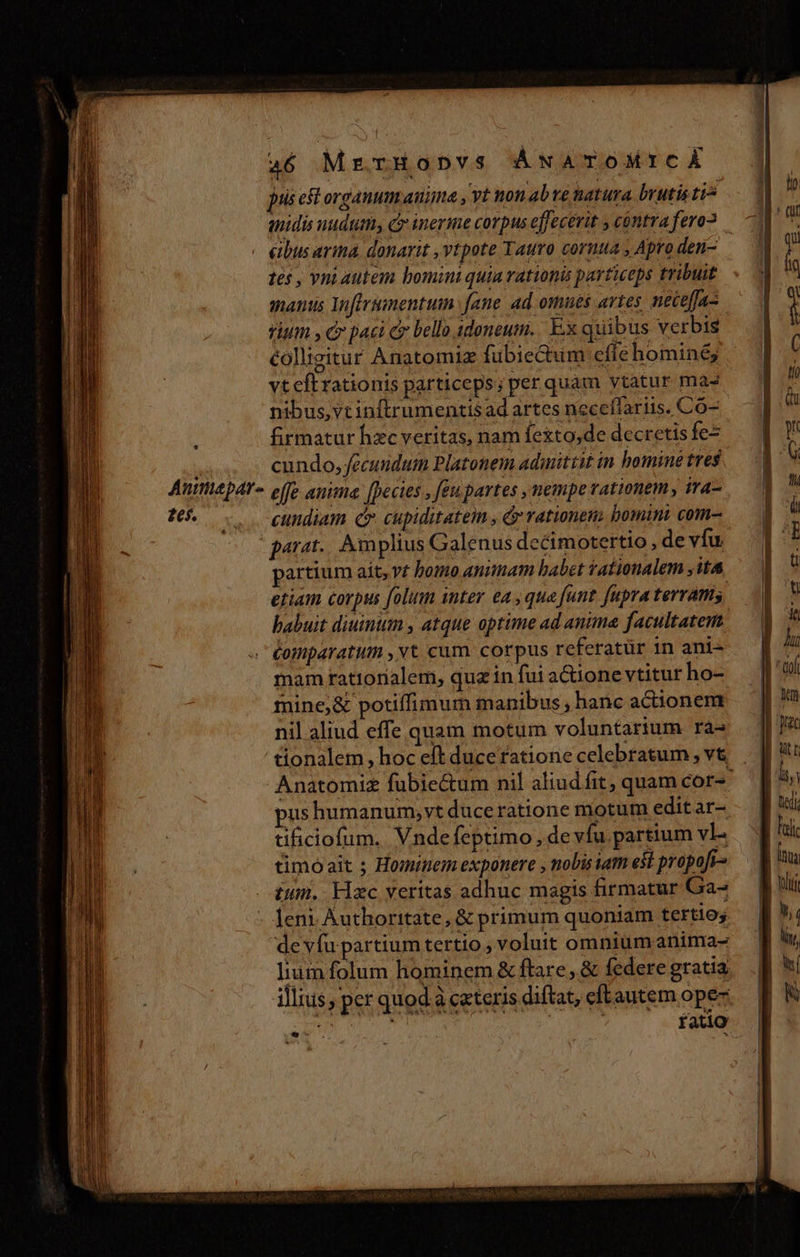 46 METHODVS ANATOMICÆ
pus est organum animæ, vt non ab re natura brutis ti-
midis nudum, & inerme corpus effecerit, contra fero-
cibus arma donarit, vtpote Tauro cornua, Apro den-
tes, vni autem homini quia rationis particeps tribuit
manus instrumentum sane ad omnes artes necessa-
rium, & paci & bello idoneum. Ex quibus verbis
colligitur Anatomiæ subiectum esse hominẽ,
vt est rationis particeps; per quàm vtatur ma-
nibus, vt instrumentis ad artes necessariis. Cõ-
firmatur hæc veritas, nam sexto, de decretis se-
cundo, secundum Platonem admittit in homine tres
Animæ par-
tes.
esse animæ species, seu partes, nempe rationem, ira-
cundiam & cupiditatem, & rationem homini com-
parat. Amplius Galenus decimotertio, de vsu
partium ait, vt homo animam habet rationalem, ita
etiam corpus solum inter ea, quæ sunt supra terram,
habuit diuinum, atque optime ad animæ facultatem
comparatum, vt cum corpus referatur in ani-
mam rationalem, quæ in sui actione vtitur ho-
mine, & potissimum manibus, hanc actionem
nil aliud esse quam motum voluntarium ra-
tionalem, hoc est duce ratione celebratum, vt
Anatomiæ subiectum nil aliud sit, quam cor-
pus humanum, vt duce ratione motum edit ar-
tificiosum. Vnde septimo, de vsu partium vl-
timo ait; Hominem exponere, nobis iam est proposi-
tum. Hæc veritas adhuc magis firmatur Ga-
leni Authoritate, & primum quoniam tertio,
de vsu partium tertio, voluit omnium anima-
lium solum hominem & stare, & sedere gratia
illius, per quod à cæteris distat, est autem ope-
ratio